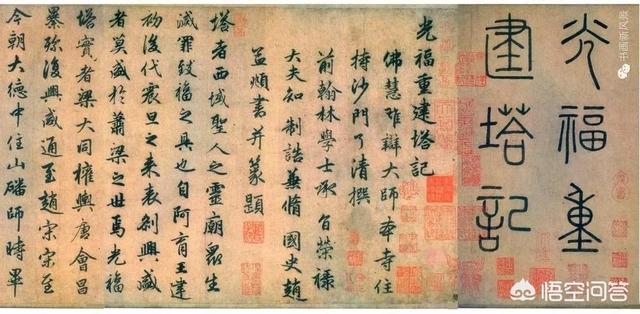 光福重
建塔記
光福重建塔記
佛慧雄辯大師本寺住
持沙門了清撰
前翰林學士承旨榮祿
大夫知制誥兼脩國史趙
孟頫書并篆題
塔者西域聖人之靈廟眾生
滅罪致福之具也自阿育王建
初後代震旦之来表剎興盛
者莫盛於蕭梁之世焉光福
塔實者梁大同權輿唐會昌
弥復興咸通至趙宋宗至
今朝大德中住山磻師時畢
书画新风景
悟空问答